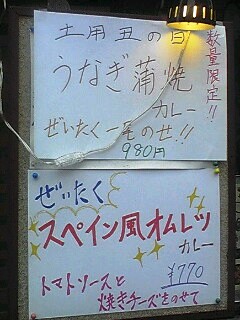 土用丑の日
数量限定!!
うなぎ蒲焼
カレー
ぜいたく一毛のせ!!
980円
ぜいたく
スペイン風オムレツ
カレー
¥770
トマトソースと
焼きチーズをのせて